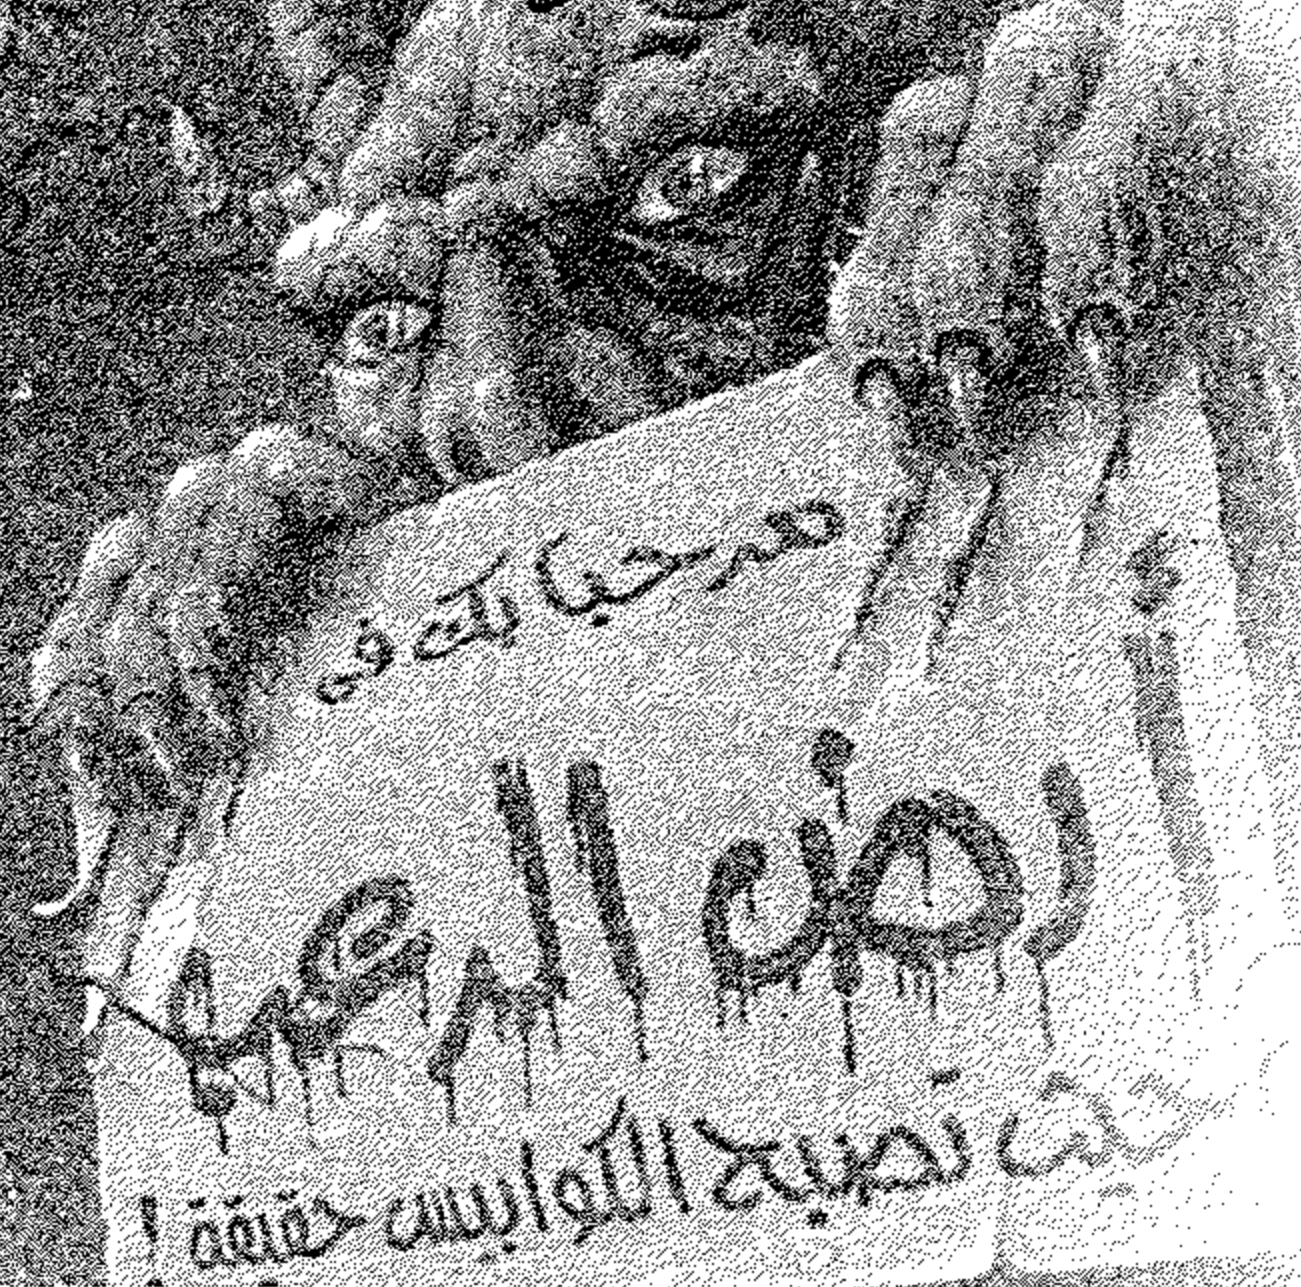 مرحبا بك في
أرض الرعب
تصبح الكوابيس حقيقة !